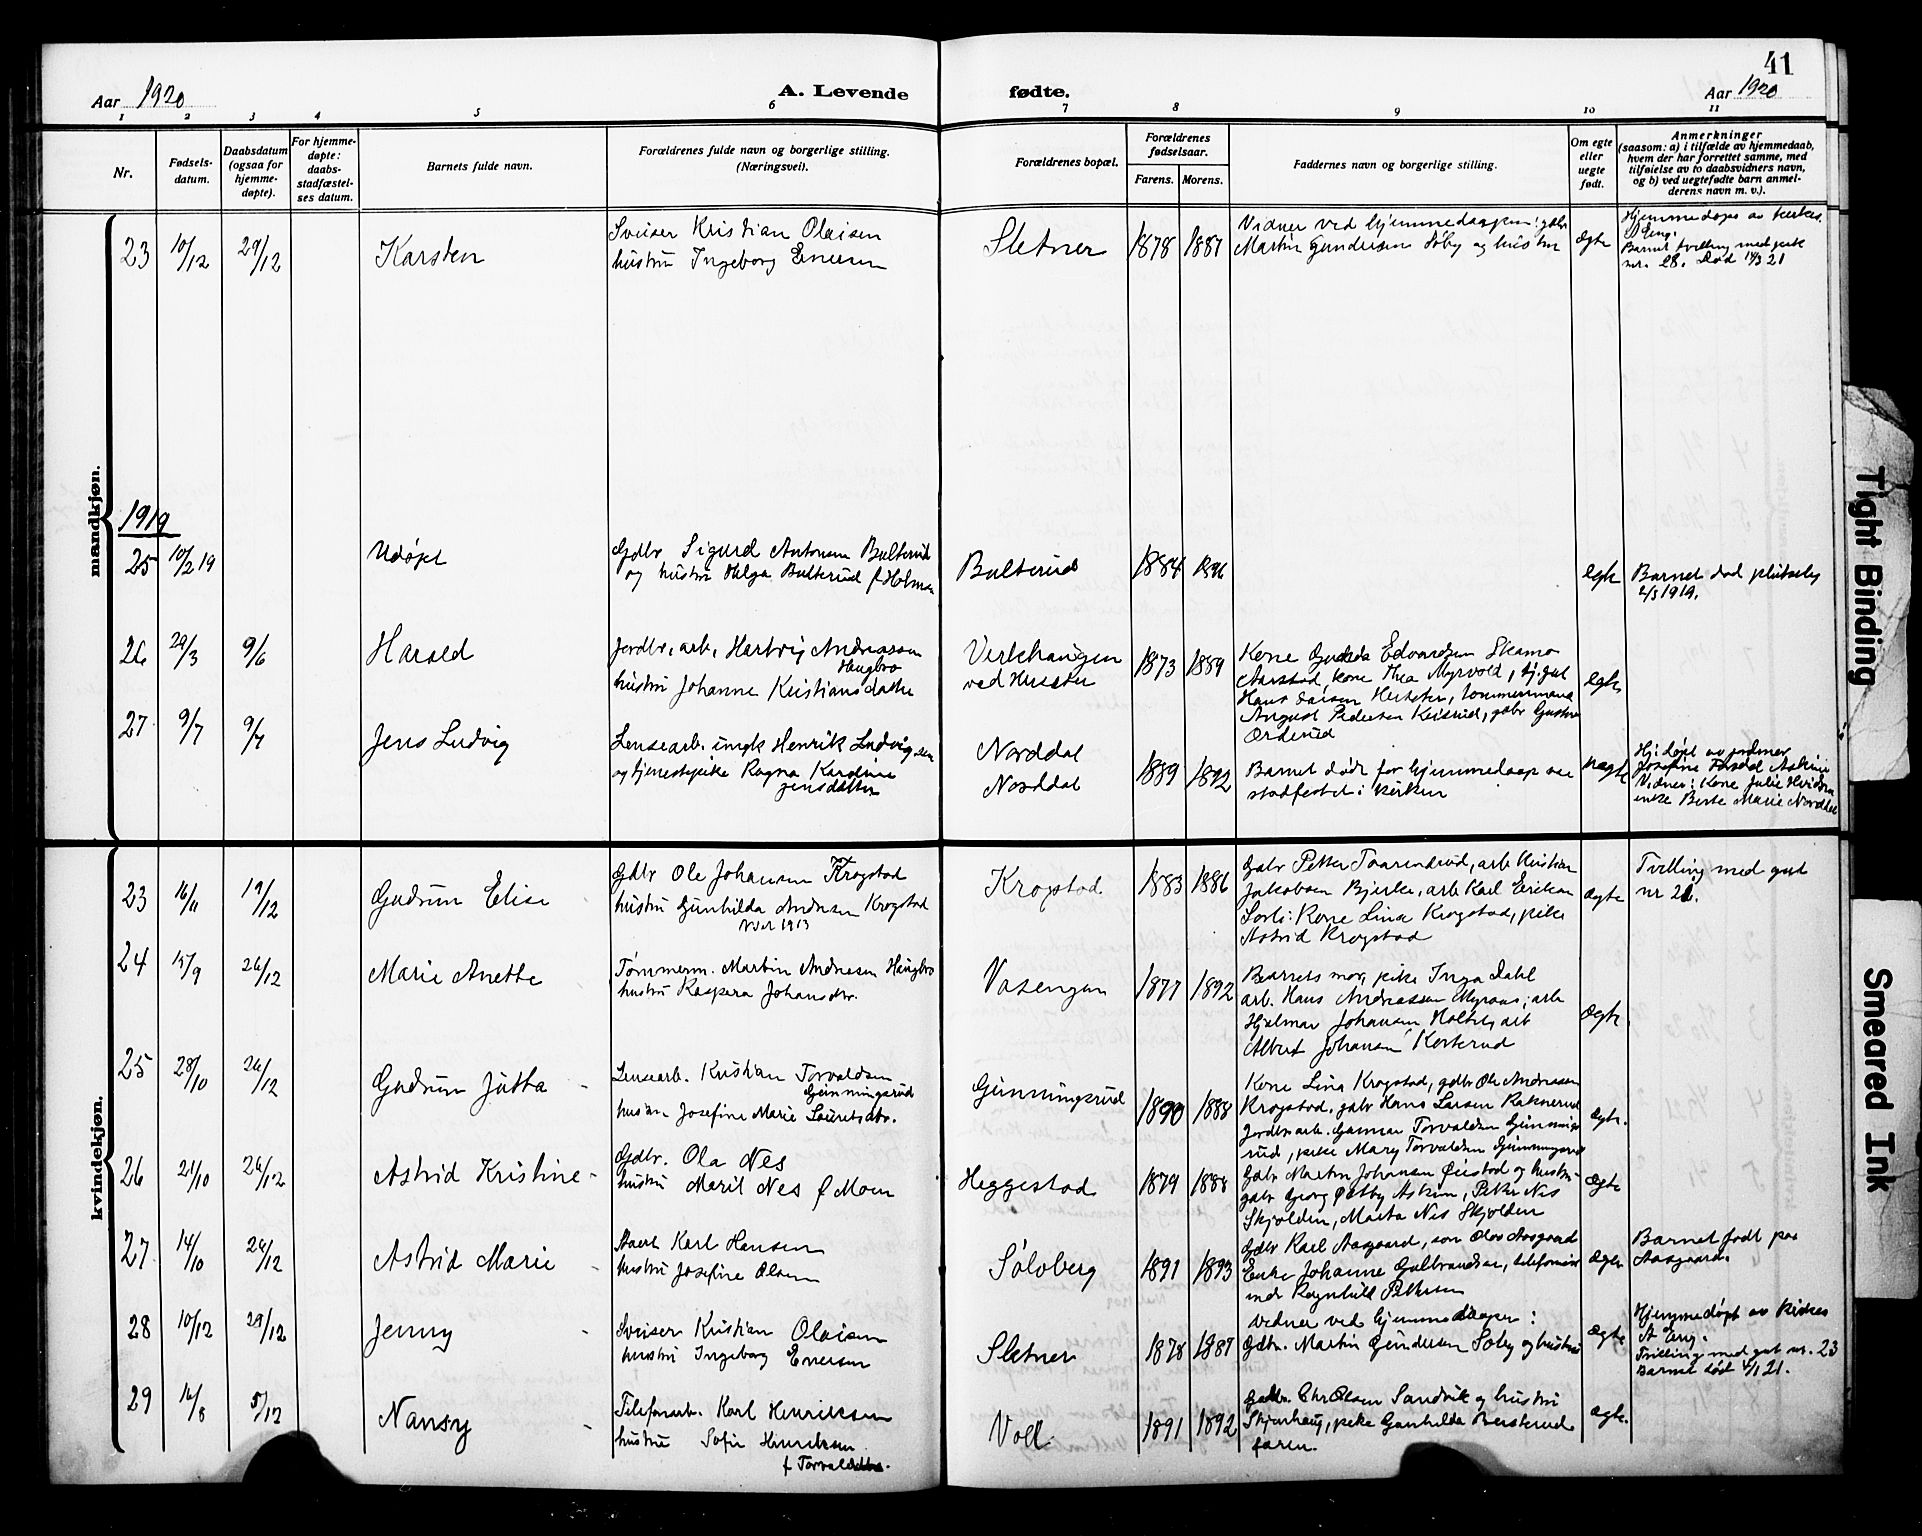 41
Aar 1920
A. Levende
fødte.
Aar 1920
1 2 3 4 5 6 7 8 9 10 11
Nr.
Fødsels-
datum.
Daabsdatum
(ogsaa for
hjemme-
døpte).
For hjemme-
døpte:
daabs-
stadfæstel-
ses datum.
Barnets fulde navn.
Forældrenes fulde navn og borgerlige stilling.
(Næringsvei).
Forældrenes bopæl.
Forældrenes
fødselsaar.
Farens. Morens.
Faddernes navn og borgerlige stilling.
Om egte
eller
uegte
født.
Anmerkninger
(saasom: a) i tilfælde av hjemmedaab,
hvem der har forrettet samme, med
tilføielse av to daabsvidners navn,
og b) ved uegtefødte barn anmel-
derens navn m. v.).
mandkjøn.
23 10/12 29/12 Karsten
Sveiser Kristian Olaisen
hustru Ingeborg Enersen
Sletner 1878 1887
Vidner ved hjemmedaapen: gdbr
Martin Gundersen Søby og hustru
Ægte
Hjemmedøpt av
Eng.
Barnet tvilling med pike
nr. 28. Død 21
1919
25 10/2 19 Udøpt
Gdbr Sigurd Antonsen Bulterud
og hustru Helga Bulterud f Holmen
Bulterud 1884 1896
egte
Barnet død plutselig
2/3 1919.
26 29/3 9/6 Harald
Jordbr. arb. Hartvig Andreassen
Haugbro
hustru Johanne Kristiansdatter
ved
1873 1889
Kone Edvardsen Skamo
kone Thea Myrvold,
Hans Larsen tømmermand
August Pedersen gdbr Gustav
Orderud
egte
27 9/7 9/7 Jens Ludvig
Lensearb. ungk Henrik Ludvigsen
og tjenestepike Ragna Karoline
Jensdatter
Norddal
Norddal
1889 1892
Barnet døde før hjemmedaap var
stadfestet i kirken
uegte
Hj. døpt av jordmor
Josefine Askim
Vidner: Kone Julie
enke Berte Marie Norddal
kvindekjøn.
23 16/11 19/12 Gudrun Elise
Gdbr Ole Johansen Krogstad
hustru Gunhilda Andersen Krogstad
1913
Krogstad 1883 1886
Gdbr Petter Taarendrud, arb Kristian
Jakobsen Bjerke, arb Karl Eriksen
Kone Lina Krogstad, pike
Astrid Krogstad
Ægte
Tvilling med gut
nr 21.
24 15/9 26/12 Marie Anette
Tømmerm. Martin Andresen Haugbro
hustru Kaspara Johansdtr.
Vasengen 1877 1892
Barnets mor, pike Inga Dahl
arb. Hans Andreassen Myraas, arb
Hjelmar Johansen Holteby arb
Albert Johansen Korterud
Ægte.
25 28/10 26/12 Gudrun Jutta
Lensearb. Kristian Torvaldsen
Gunningsrud
hustru Josefine Marie Lauretsdtr.
Gunningsrud 1890 1888
Kone Lina Krogstad, gdbr Ole Andreassen
Krogstad, gdbr Hans Larsen Raknerud
Jordbr. arb. Gunnar Torvaldsen Gunnings-
rud, pike Mary Torvaldsen Gunningsrud
Ægte.
26 21/10 26/12 Astrid Kristine
Gdbr. Ola Nes
hustru Marit Nes f Moen
Heggestad 1879 1888
Gdbr Martin Johansen Øiestad og hustru
gdbr Georg Askim, Peter Nes
Skjolden, Marta Nes Skjolden
Ægte
27 14/10 26/12 Astrid Marie
Karl Hansen
hustru Josefine Olsen
Solvberg 1891 1893
Gdbr Karl Aasgaard, søn Olav Aasgaard
Enke Johanne Gulbrandsen, telefonist
inde Ragnhild Pettersen
Ægte
Barnet født paa
Aasgaard.
28 10/12 29/12 Jenny
Sveiser Kristian Olaisen
hustru Ingeborg Enersen
Sletner 1878 1887
Vidner ved hjemmedaapen:
Gdbr. Martin Gundersen Søby og hustru
Ægte
Hjemmedøpt av
Eng.
Tvilling med gut nr. 23
Barnet død 4/1 21.
29 16/8 5/12 Nansy
Telefonarb. Karl Henriksen
hustru Sofie Henriksen
f Torvaldsdtr.
Voll 1891 1892
Gdbr. Chr Olsen Sandvik og hustru
Skjørhaug, pike Gunhilda
faren.
Ægte.
Tight Binding
Smeared Ink